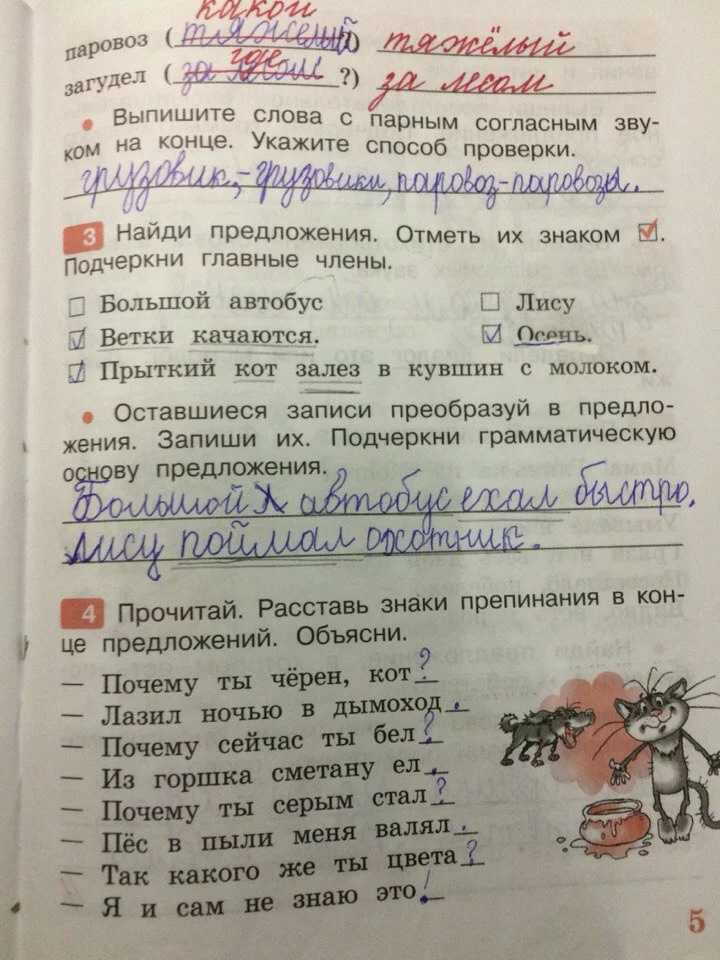 какой
паровоз (тяжелый) тяжёлый
где
загудел (за лесом?) за лесом
• Выпишите слова с парным согласным зву-
ком на конце. Укажите способ проверки.
грузовик, - грузовики, паровоз-паровозы.
3 Найди предложения. Отметь их знаком ☑.
Подчеркни главные члены.
☐ Большой автобус ☐ Лису
☑ Ветки качаются. ☑ Осень.
☑ Прыткий кот залез в кувшин с молоком.
• Оставшиеся записи преобразуй в предло-
жения. Запиши их. Подчеркни грамматическую
основу предложения.
Большой автобус ехал быстро.
Лису поймал охотник.
4 Прочитай. Расставь знаки препинания в кон-
це предложений. Объясни.
— Почему ты чёрен, кот?
— Лазил ночью в дымоход.
— Почему сейчас ты бел?
— Из горшка сметану ел.
— Почему ты серым стал?
— Пёс в пыли меня валял.
— Так какого же ты цвета?
— Я и сам не знаю это!
5